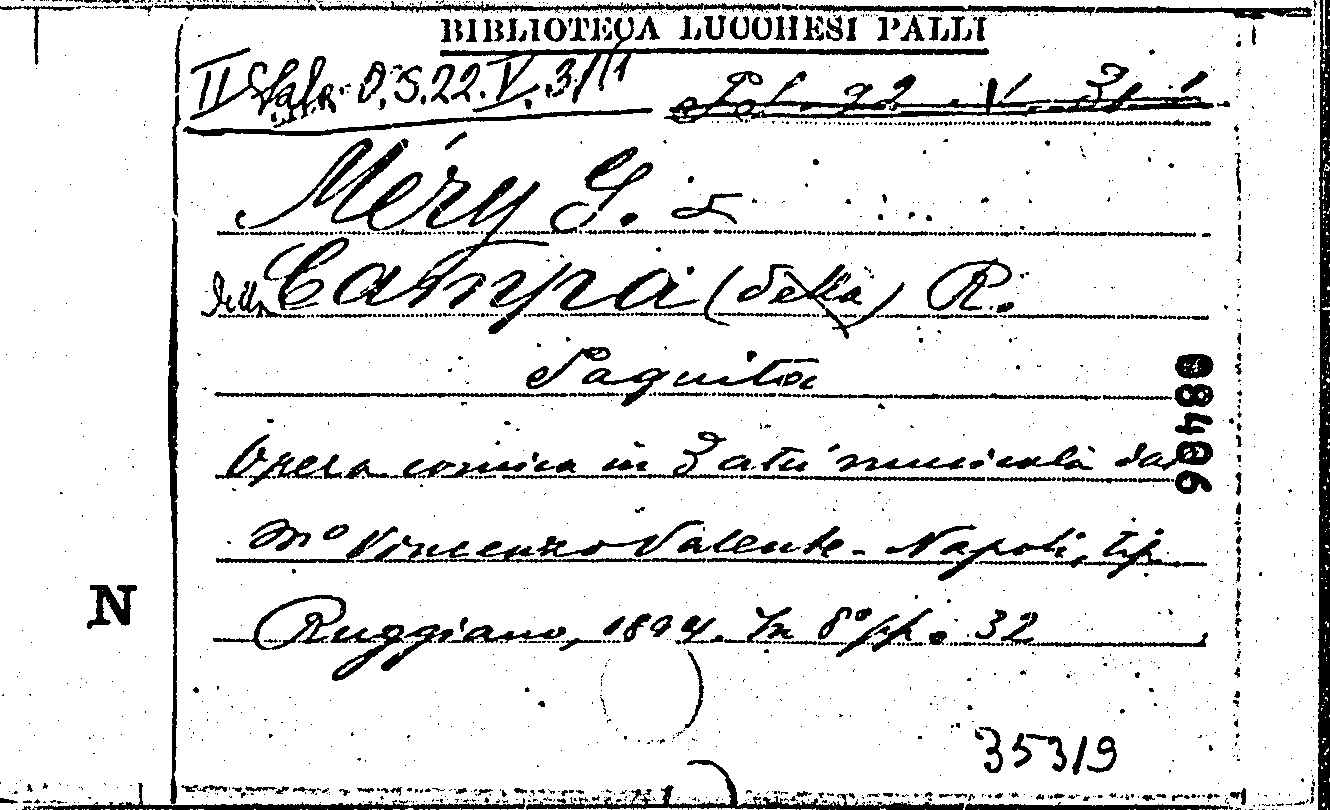 BIBLIOTECA LUCCHESI PALLI
II 22.V.3/11
22. V. 31
Méry G. e
della Campa (della) R.
Paquita
Opera comica in 3 atti musicata dal
Mº Vincenzo Valente - Napoli, tip.
Ruggiano, 1894. In 8º pp. 32
N
08406
35319